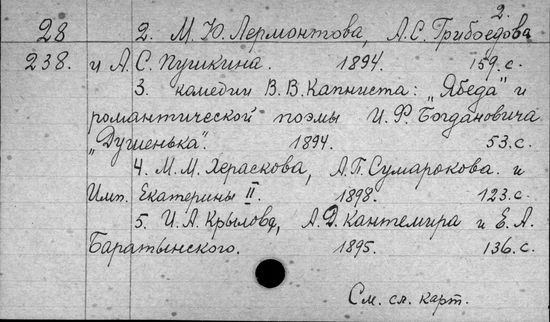 2.
28 2. М. Ю. Лермонтова, А. С. Грибоедова
238. и А. С. Пушкина. 1894. 159. с.
3. комедии В. В. Капниста: „Ябеда" и
романтической поэмы И. Ф. Богдановича
„Душенька". 1894. 53. с.
4. М. М. Хераскова, А. П. Сумарокова. и
Имп. Екатерины II. 1898. 123. с.
5. И. А. Крылова, А. Д. Кантемира и Е. А.
Баратынского. 1895. 136. с.
См. сл. карт.